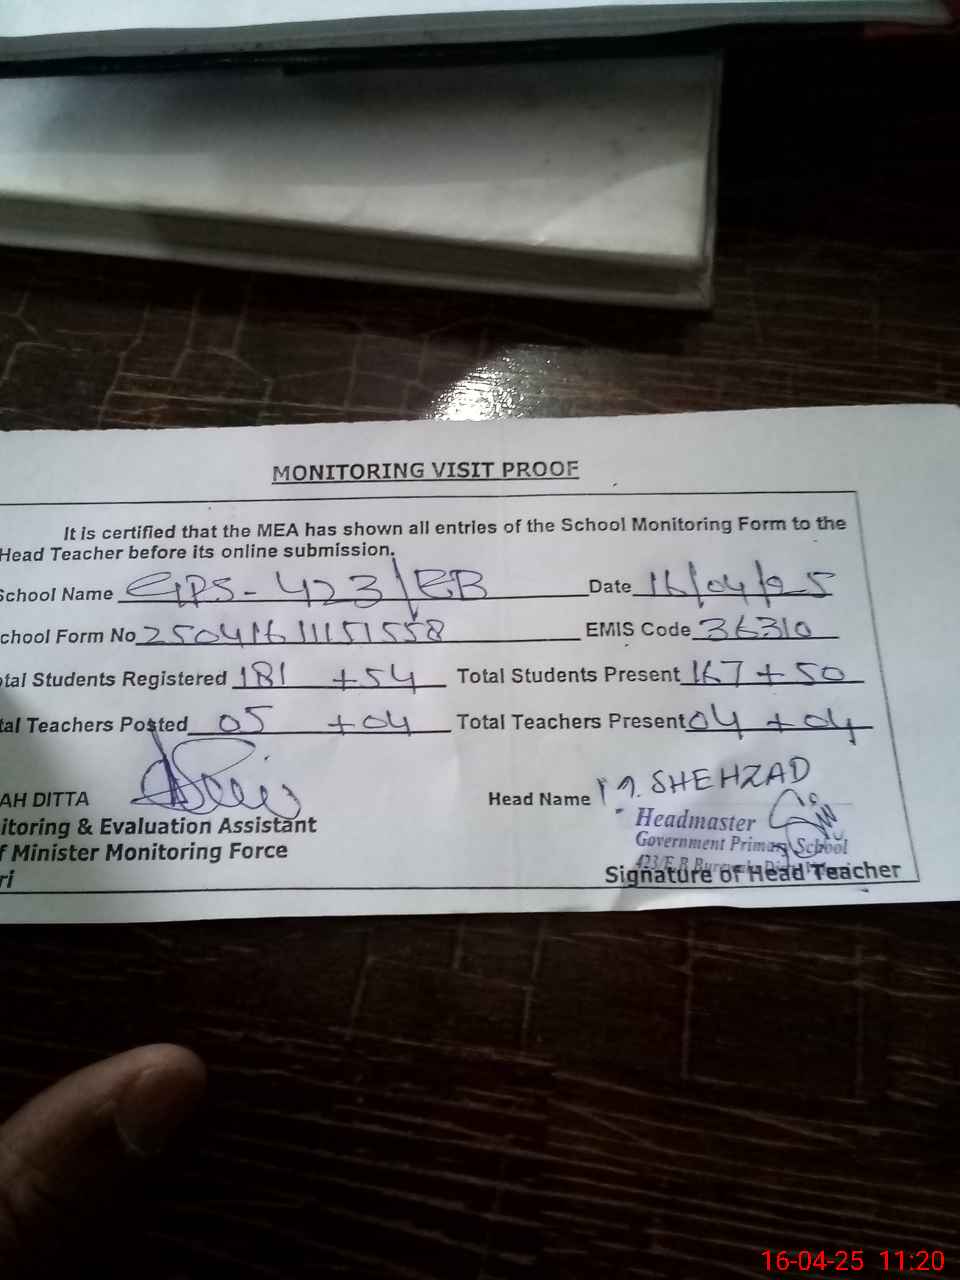 MONITORING VISIT PROOF
It is certified that the MEA has shown all entries of the School Monitoring Form to the
Head Teacher before its online submission.
School Name GPS-423/EB Date 16/04/25
chool Form No 25041611151558 EMIS Code 36310
tal Students Registered 181 +54 Total Students Present 167+50
tal Teachers Posted 05 +04 Total Teachers Present 04 + 04
AH DITTA
Head Name M. SHEHZAD
itoring & Evaluation Assistant
f Minister Monitoring Force
ri
Headmaster
Government Primary School
423/E.B
Signature of Head Teacher
16-04-25 11:20